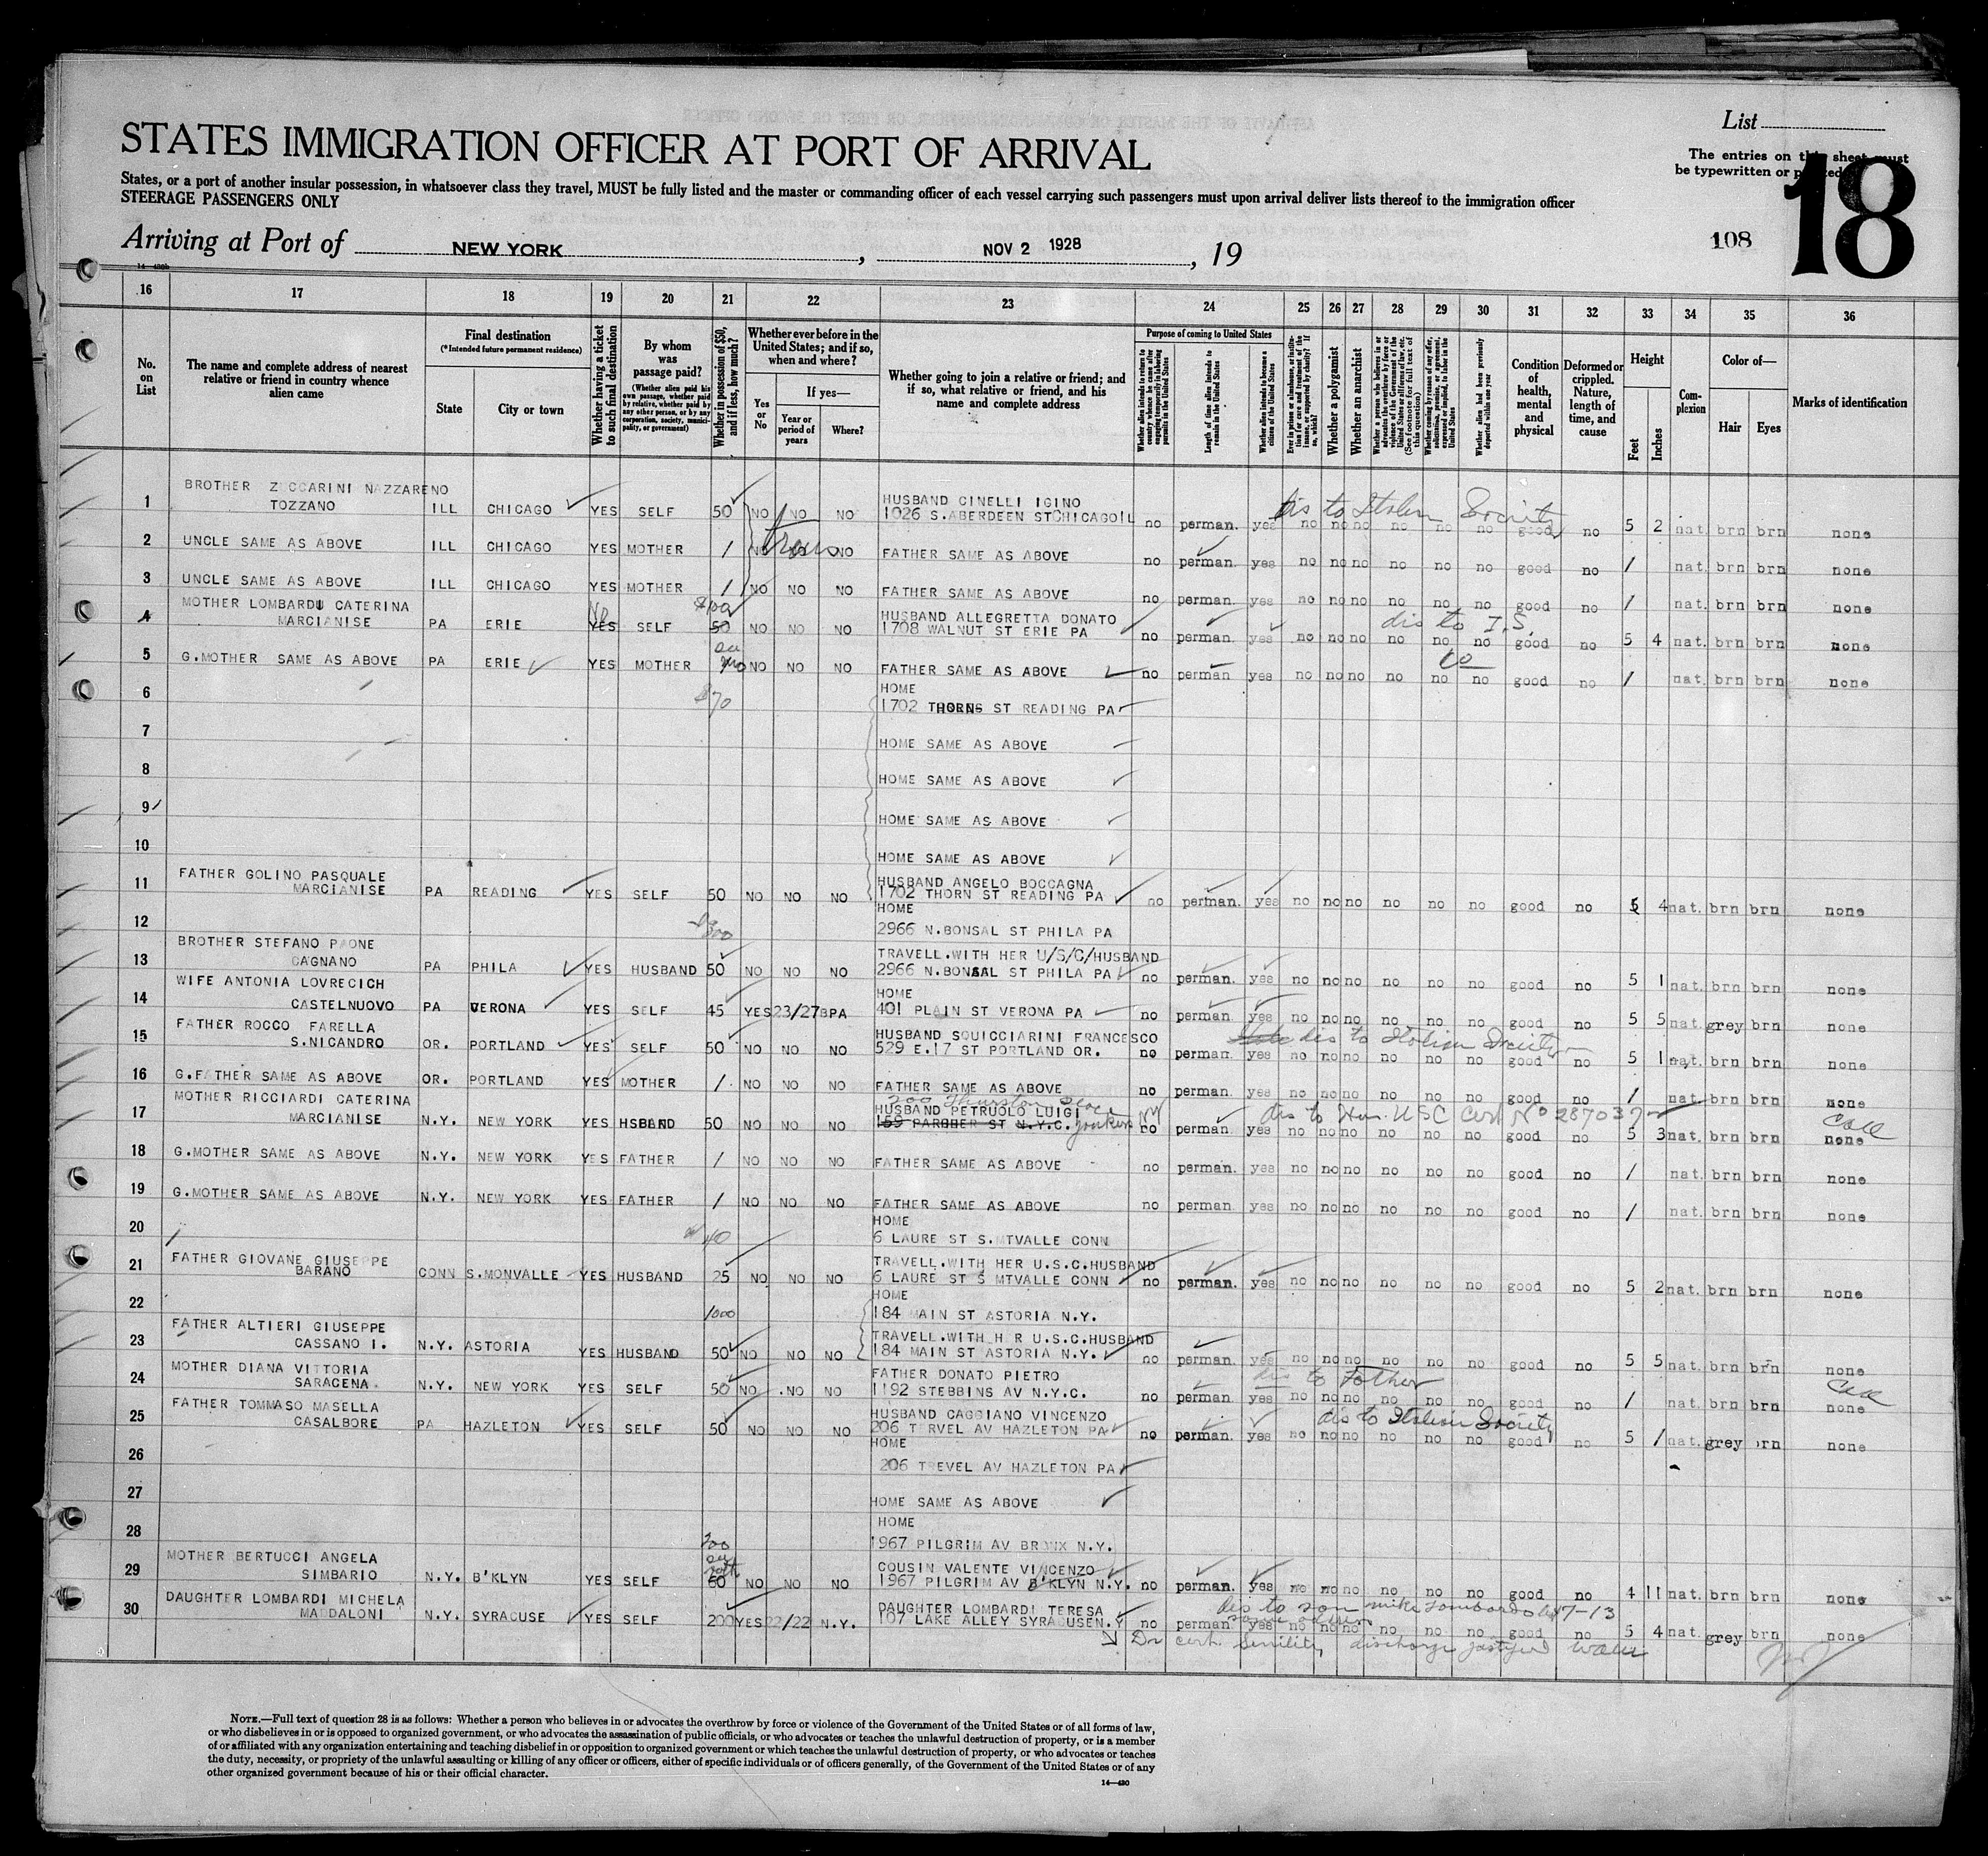 List
STATES IMMIGRATION OFFICER AT PORT OF ARRIVAL
The entries on this sheet must
be typewritten or printed
18
States, or a port of another insular possession, in whatsoever class they travel, MUST be fully listed and the master or commanding officer of each vessel carrying such passengers must upon arrival deliver lists thereof to the immigration officer
STEERAGE PASSENGERS ONLY
Arriving at Port of NEW YORK, NOV 2 1928, 19
108
16 17 18 19 20 21 22 23 24 25 26 27 28 29 30 31 32 33 34 35 36
No. on List
The name and complete address of nearest relative or friend in country whence alien came
Final destination
(*Intended future permanent residence)
State
City or town
Whether having a ticket to such final destination
By whom was passage paid?
(Whether alien paid his own passage, whether paid by relative, whether paid by any other person, or by any corporation, society, municipality, or government)
Whether in possession of $50, and if less, how much?
Whether ever before in the United States; and if so, when and where?
Yes or No
If yes—
Year or period of years
Where?
Whether going to join a relative or friend; and if so, what relative or friend, and his name and complete address
Purpose of coming to United States
Whether alien intends to return to country whence he came after engaging temporarily in laboring pursuits in the United States
Length of time alien intends to remain in the United States
Whether alien intends to become a citizen of the United States
Whether a polygamist
Whether an anarchist
Condition of health, mental and physical
Deformed or crippled. Nature, length of time, and cause
Height
Feet
Inches
Complexion
Color of—
Hair
Eyes
Marks of identification
BROTHER ZUCCARINI NAZZARENO HUSBAND CINELLI IGINO dis to Italian Society
1 TOZZANO ILL CHICAGO YES SELF 50 NO NO NO 1026 S.ABERDEEN ST CHICAGO IL no perman. yes no no no no no no good no 5 2 nat. brn brn none
2 UNCLE SAME AS ABOVE ILL CHICAGO YES MOTHER / NO NO NO FATHER SAME AS ABOVE no perman. yes no no no no no no good no / nat. brn brn none
3 UNCLE SAME AS ABOVE ILL CHICAGO YES MOTHER / NO NO NO FATHER SAME AS ABOVE no perman. yes no no no no no no good no / nat. brn brn none
MOTHER LOMBARDI CATERINA No HUSBAND ALLEGRETTA DONATO dis to I.S.
4 MARCIANISE PA ERIE YES SELF 50 NO NO NO 1708 WALNUT ST ERIE PA no perman. yes no no no no no no good no 5 4 nat. brn brn none
5 G.MOTHER SAME AS ABOVE PA ERIE YES MOTHER NO NO NO FATHER SAME AS ABOVE no perman yes no no no no no no good no / nat. brn brn none
6 $70 HOME
1702 THORN ST READING PA
7 HOME SAME AS ABOVE
8 HOME SAME AS ABOVE
9 HOME SAME AS ABOVE
10 HOME SAME AS ABOVE
FATHER GOLINO PASQUALE HUSBAND ANGELO BOCCAGNA
11 MARCIANISE PA READING YES SELF 50 NO NO NO 1702 THORN ST READING PA no perman. yes no no no no no no good no 5 4 nat. brn brn none
12 300 HOME
2966 N.BONSAL ST PHILA PA
BROTHER STEFANO PAONE TRAVELL.WITH HER U/S/C/HUSBAND
13 CAGNANO PA PHILA YES HUSBAND 50 NO NO NO 2966 N.BONSAL ST PHILA PA no perman. yes no no no no no no good no 5 1 nat. brn brn none
WIFE ANTONIA LOVRECICH HOME
14 CASTELNUOVO PA VERONA YES SELF 45 YES 23/27 PA 401 PLAIN ST VERONA PA no perman. yes no no no no no no good no 5 5 nat. grey brn none
FATHER ROCCO FARELLA HUSBAND SQUICCIARINI FRANCESCO dis to Italian Society
15 S.NICANDRO OR. PORTLAND YES SELF 50 NO NO NO 529 E.17 ST PORTLAND OR. no perman. yes no no no no no no good no 5 1 nat. brn brn none
16 G.FATHER SAME AS ABOVE OR. PORTLAND YES MOTHER / NO NO NO FATHER SAME AS ABOVE no perman. yes no no no no no no good no / nat. brn brn none
MOTHER RICCIARDI CATERINA 200 Thurston Place HUSBAND PETRUOLO LUIGI dis to Hus. USC Cert No 287037
17 MARCIANISE N.Y. NEW YORK YES HSBAND 50 NO NO NO ST N.Y.C. Yonkers NY no perman. yes no no no no no no good no 5 3 nat. brn brn none
18 G.MOTHER SAME AS ABOVE N.Y. NEW YORK YES FATHER / NO NO NO FATHER SAME AS ABOVE no perman. yes no no no no no no good no / nat. brn brn none
19 G.MOTHER SAME AS ABOVE N.Y. NEW YORK YES FATHER / NO NO NO FATHER SAME AS ABOVE no perman. yes no no no no no no good no / nat. brn brn none
20 40 HOME
6 LAURE ST S.MTVALLE CONN
FATHER GIOVANE GIUSEPPE TRAVELL.WITH HER U.S.C.HUSBAND
21 BARANO CONN S.MONVALLE YES HUSBAND 25 NO NO NO 6 LAURE ST S MTVALLE CONN no perman. yes no no no no no no good no 5 2 nat. brn brn none
22 1000 HOME
184 MAIN ST ASTORIA N.Y.
FATHER ALTIERI GIUSEPPE TRAVELL.WITH HER U.S.C.HUSBAND
23 CASSANO I. N.Y. ASTORIA YES HUSBAND 50 NO NO NO 184 MAIN ST ASTORIA N.Y. no perman. yes no no no no no no good no 5 5 nat. brn brn none
MOTHER DIANA VITTORIA FATHER DONATO PIETRO dis to Father
24 SARACENA N.Y. NEW YORK YES SELF 50 NO NO NO 1192 STEBBINS AV N.Y.C. no perman. yes no no no no no no good no / nat. brn brn none
FATHER TOMMASO MASELLA HUSBAND CAGGIANO VINCENZO dis to Italian Society
25 CASALBORE PA HAZLETON YES SELF 50 NO NO NO 206 T RVEL AV HAZLETON PA no perman. yes no no no no no no good no 5 / nat. grey brn none
26 HOME
206 TREVEL AV HAZLETON PA
27 HOME SAME AS ABOVE
28 HOME
1967 PILGRIM AV BRONX N.Y.
MOTHER BERTUCCI ANGELA COUSIN VALENTE VINCENZO
29 SIMBARIO N.Y. B'KLYN YES SELF 60 NO NO NO 1967 PILGRIM AV B'KLYN N.Y. no perman. yes no no no no no no good no 4 11 nat. brn brn none
DAUGHTER LOMBARDI MICHELA DAUGHTER LOMBARDI TERESA dis to son Mike Lombardo
30 MADDALONI N.Y. SYRACUSE YES SELF 200 YES 22/22 N.Y. 107 LAKE ALLEY SYRACUSE N.Y no perman. yes no no no no no no good no 5 4 nat. grey brn none
Dr cert. Senility discharge
NOTE.—Full text of question 28 is as follows: Whether a person who believes in or advocates the overthrow by force or violence of the Government of the United States or of all forms of law,
or who disbelieves in or is opposed to organized government, or who advocates the assassination of public officials, or who advocates or teaches the unlawful destruction of property, or is a member
of or affiliated with any organization entertaining and teaching disbelief in or opposition to organized government or which teaches the unlawful destruction of property, or who advocates or teaches
the duty, necessity, or propriety of the unlawful assaulting or killing of any officer or officers, either of specific individuals or of officers generally, of the Government of the United States or of any
other organized government because of his or their official character.
14—430